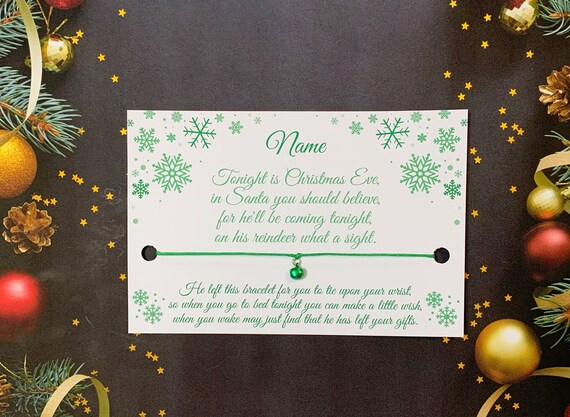 Name
Tonight is Christmas Eve,
in Santa you should believe,
for he'll be coming tonight,
on his reindeer what a sight.
He left this bracelet for you to tie upon your wrist,
so when you go to bed tonight you can make a little wish,
when you wake may just find that he has left your gifts.